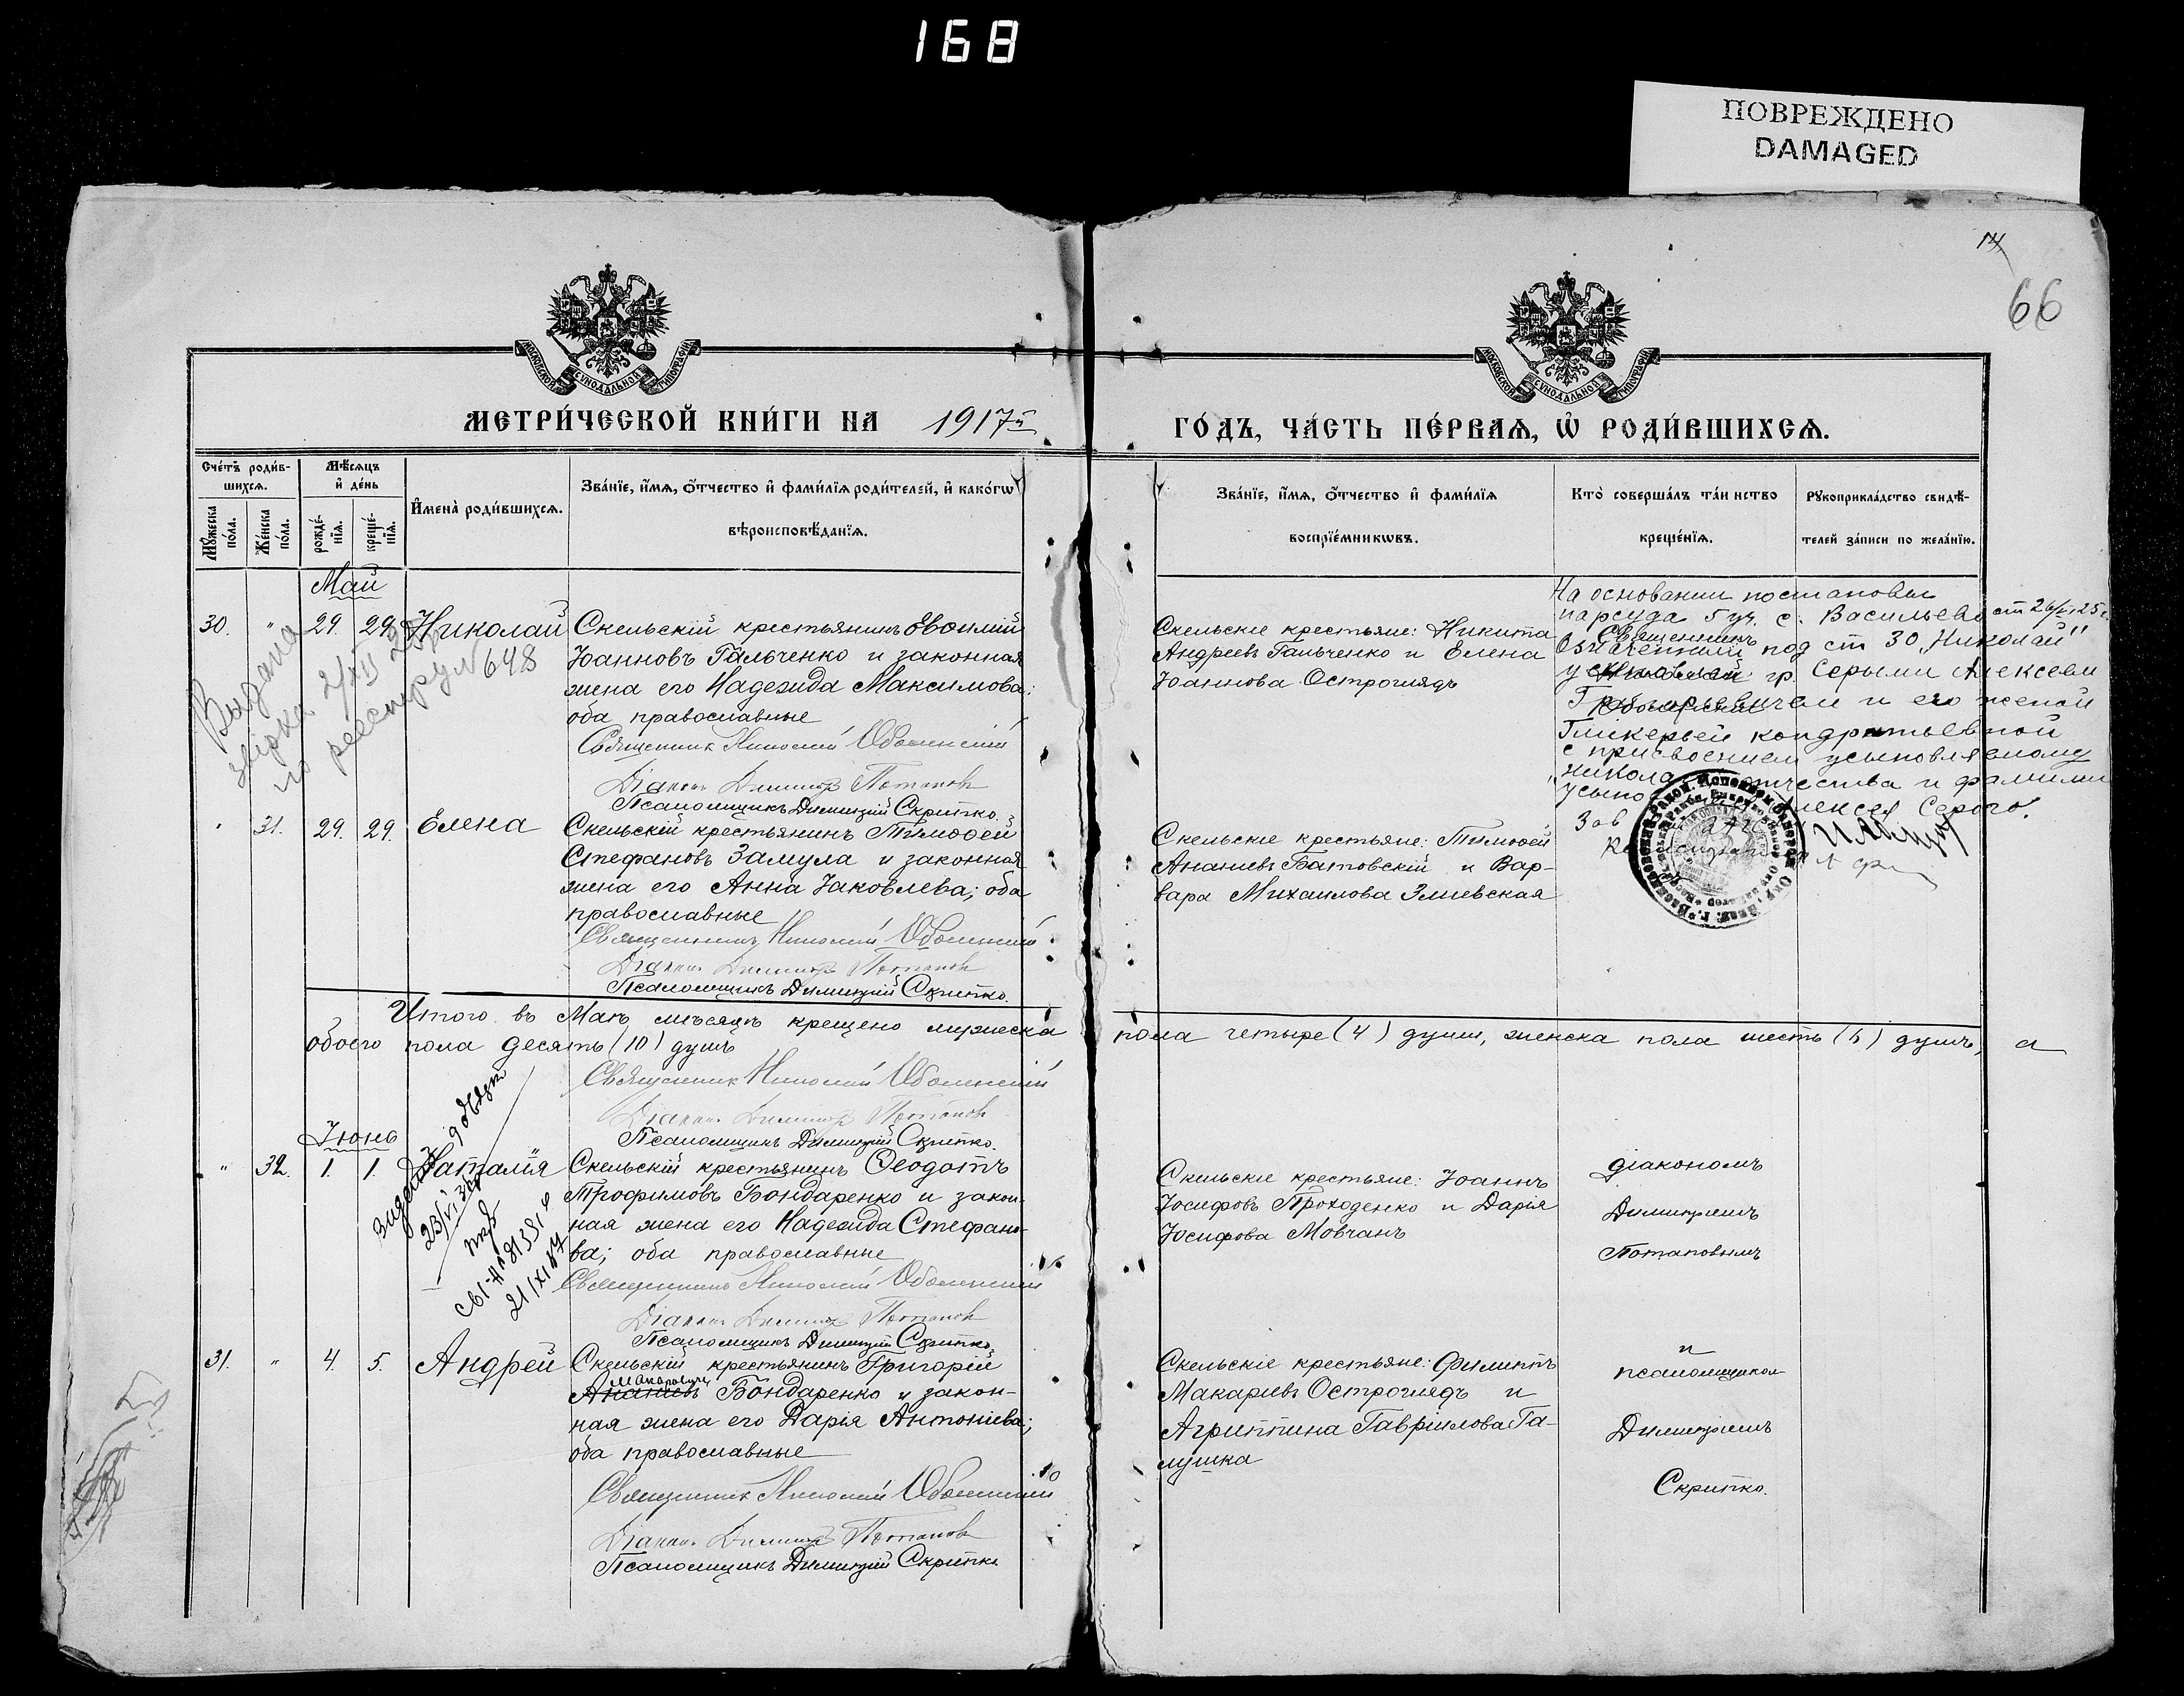 168
ПОВРЕЖДЕНО
DAMAGED
14
66
МОСКОВСКОЙ СѴНОДАЛЬНОЙ ТИПОГРАФІИ
МОСКОВСКОЙ СѴНОДАЛЬНОЙ ТИПОГРАФІИ
МЕТРИ́ЧЕСКОЙ КНИ́ГИ НА 1917й
ГО́ДЪ, ЧА́СТЬ ПЕ́РВАѦ, Ѡ҆ РОДИ́ВШИХСѦ.
Сче́тъ роди́вшихсѧ.
Мꙋ́жеска по́ла.
Же́нска по́ла.
Мѣ́сѧцъ и҆ де́нь
рожде́нїѧ.
креще́нїѧ.
И҆мена̀ роди́вшихсѧ.
Зва́нїе, и҆́мѧ, ѻ҆́тчество и҆ фами́лїѧ роди́телей, и҆ како́гѡ
вѣроисповѣ́данїѧ.
Зва́нїе, и҆́мѧ, ѻ҆́тчество и҆ фами́лїѧ
воспрїе́мникѡвъ.
Кто̀ соверша́лъ та́инство
креще́нїѧ.
Рꙋкоприкла́дство свидѣ́телей за́писи по жела́нїю.
Май
30. " 29. 29. Николай
Скельскій крестьянинъ Евѳимій
Іоанновъ Гальченко и законная
жена его Надежда Максимова;
оба православные
Священник Николай Оболенскій
Діаконъ Димитр Потапов
Псаломщикъ Димитрій Скрипко.
Скельскіе крестьяне: Никита
Андреевъ Гальченко и Елена
Іоаннова Остроглядъ
Священникъ
Николай
Оболенскій
На основании постановы
нарсуда 5 уч. с. Васильево от 26/ 25 г
под ст 30 „Николай"
гр. Серыми Алексеем
Григорьевичем и его женой
Гликерьей кондратьевной
с присвоением усыновляемому
отчества и фамилии
Алексея Серого.
Зав
Видана
по реестру № 648
" 31. 29. 29. Елена
Скельскій крестьянинъ Тимоѳей
Стефановъ Замула и законная
жена его Анна Іаковлева; оба
православные
Священникъ Николай Оболенскій
Діаконъ Димитр Потапов
Псаломщикъ Димитрій Скрипко.
Скельскіе крестьяне: Тимоѳей
Ананіевъ Батовскій и Вар-
вара Михаилова Змиевская
Итого въ Маѣ мѣсяцѣ крещено мужеска пола четыре (4) души, женска пола шесть (6) душъ, а
обоего пола десять (10) душъ
Священник Николай Оболенскій
Діаконъ Димитр Потапов
Псаломщикъ Димитрій Скрипко.
Іюнь
" 32. 1. 1. Наталія
Скельскій крестьянинъ Ѳеодотъ
Трофимовъ Бондаренко и закон-
ная жена его Надежда Стефано-
ва; оба православные
Священникъ Николай Оболенскій
Діаконъ Димитр Потапов
Псаломщикъ Димитрій Скрипко.
Скельскіе крестьяне: Іоаннъ
Іосифовъ Проходенко и Дарія
Іосифова Мовчанъ
діакономъ
Димитріемъ
Потаповымъ
31. " 4. 5. Андрей
Скельскій крестьянинъ Григорій
Макарович
Ананіевъ Бондаренко и закон-
ная жена его Дарія Антоніева;
оба православные
Священник Николай Оболенскій
Діаконъ Димитр Потапов
Псаломщикъ Димитрій Скрипко.
Скельскіе крестьяне: Филиппъ
Макаріевъ Остроглядъ и
Агриппина Гавріилова Га-
лушка
и
псаломщиком
Димитріемъ
Скрипко.